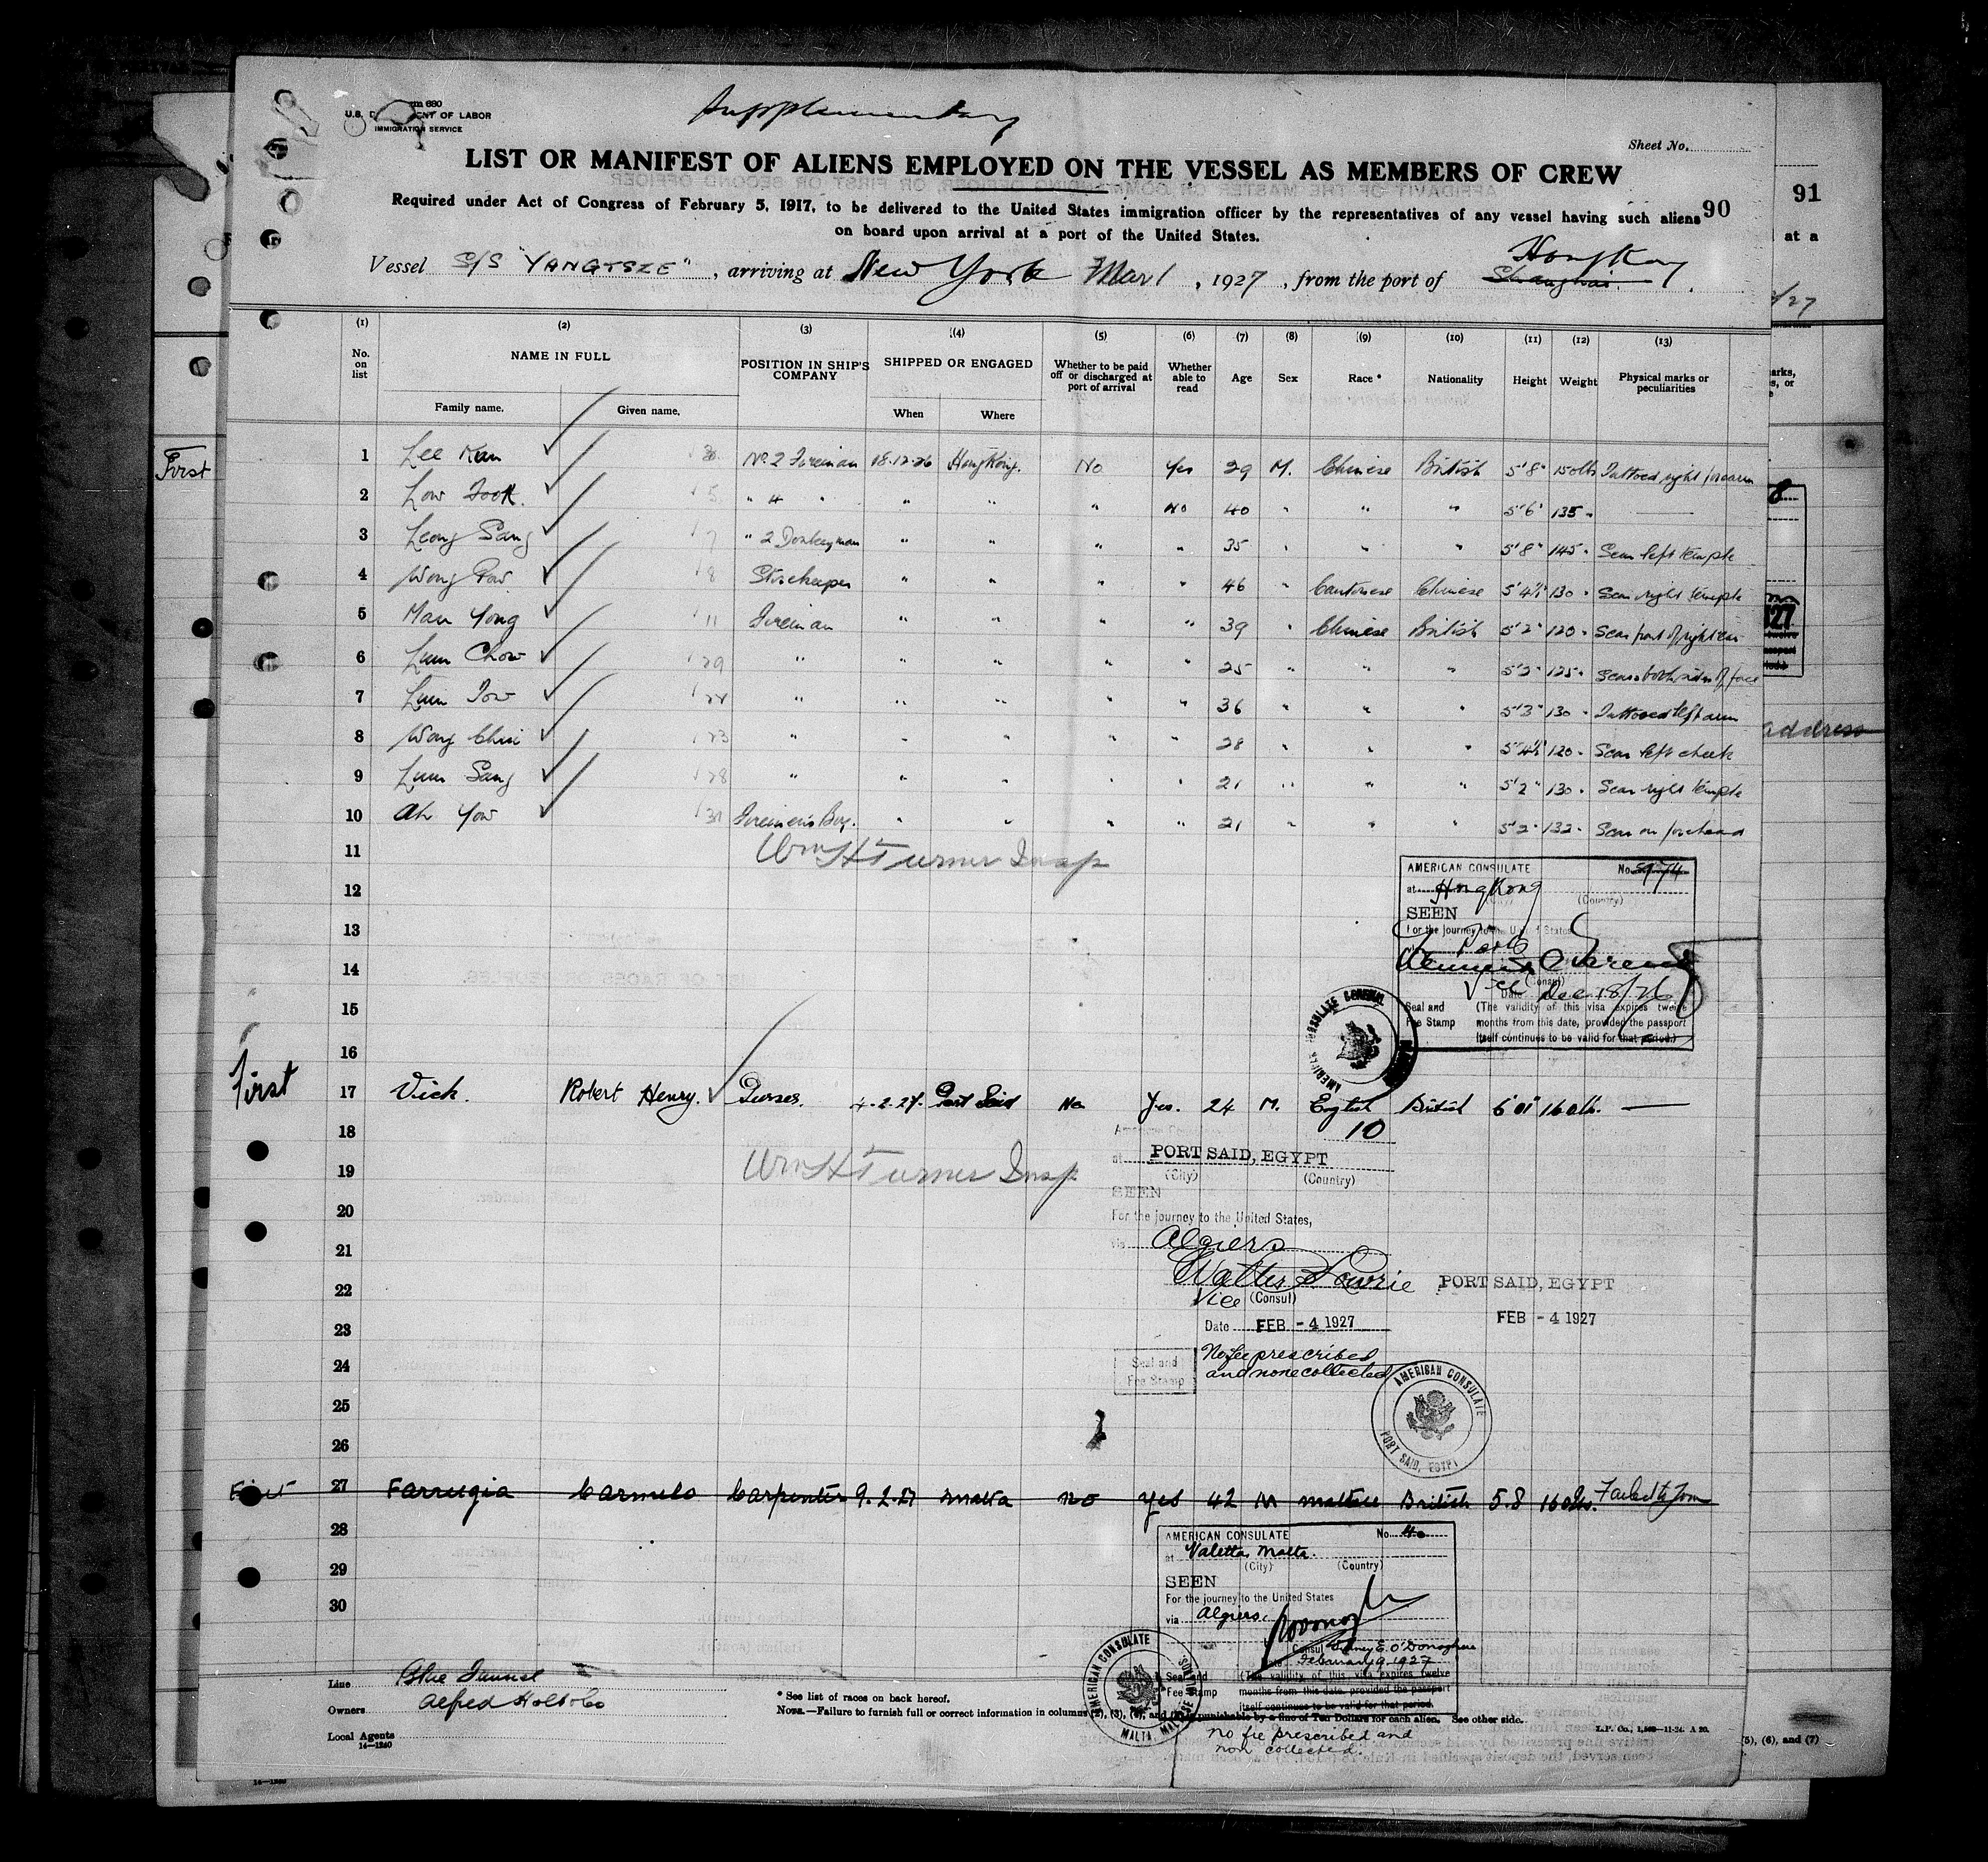 Supplementary
Form 680
U.S. DEPARTMENT OF LABOR
IMMIGRATION SERVICE
Sheet No.
LIST OR MANIFEST OF ALIENS EMPLOYED ON THE VESSEL AS MEMBERS OF CREW
Required under Act of Congress of February 5, 1917, to be delivered to the United States immigration officer by the representatives of any vessel having such aliens 90
on board upon arrival at a port of the United States.
91
at a
Hong Kong
Vessel S/S "YANGTSZE", arriving at New York Mar 1, 1927, from the port of Shanghai.
(1) (2) (3) (4) (5) (6) (7) (8) (9) (10) (11) (12) (13)
No. on list NAME IN FULL POSITION IN SHIP'S COMPANY SHIPPED OR ENGAGED Whether to be paid off or discharged at port of arrival Whether able to read Age Sex Race * Nationality Height Weight Physical marks or peculiarities
Family name. Given name. When Where
First 1 Lee Kan 3 No. 2 Fireman 18.12.26 Hong Kong. No Yes 29 M. Chinese British 5'8" 150 lbs Tattoed right forearm
2 Low Fook. 5 " 4 " " " " No 40 " " " 5'6" 135 "
3 Leong Sang 7 " 2 Donkeyman " " " " 35 " " " 5'8" 145 " Scar left temple
4 Wong Pow 8 Storekeeper " " " " 46 " Cantonese Chinese 5'4½" 130 " Scar right temple
5 Man Yong 11 Fireman " " " " 39 " Chinese British 5'2" 120 " Scar front of right ear
6 Lum Chow 29 " " " " " 25 " " " 5'2" 125 " Scars both sides of face
7 Lum Tow " " " " " 36 " " " 5'3" 130 " Tattooed left arm
8 Wong Chui 23 " " " " " 28 " " " 5'4½" 120 " Scar left cheek
9 Lum Sang 28 " " " " " 21 " " " 5'2" 130 " Scar right temple
10 Ah Yow 31 Firemen's Boy. " " " " 21 " " " 5'2" 132 " Scar on forehead
11 Wm H Turner Insp
12
13
14
15
16
AMERICAN CONSULATE No. 974
at Hong Kong
(City) (Country)
SEEN
For the journey to the United States
Vice (Consul)
Date Dec. 18/26
Seal and Fee Stamp (The validity of this visa expires twelve
months from this date, provided the passport
itself continues to be valid for that period.)
First 17 Vick. Robert Henry. Purser. 4.2.27. Port Said No Yes. 24 M. English British 6'01" 160 lb. —
18
19 Wm H Turner Insp
20
21
22
23
24
25
26
10
at PORT SAID, EGYPT
(City) (Country)
SEEN
For the journey to the United States,
via Algiers
Vice (Consul)
PORT SAID, EGYPT
Date FEB - 4 1927
FEB - 4 1927
Seal and Fee Stamp
No fee prescribed
and none collected
AMERICAN CONSULATE
PORT SAID, EGYPT
First 27 Farrugia Carmelo Carpenter 9.2.27 Malta no yes 42 M Maltese British 5.8 160 lbs. Failed to Join
28
29
30
AMERICAN CONSULATE No. 4
at Valetta, Malta.
(City) (Country)
SEEN
For the journey to the United States
via Algiers.
Consul Sidney E. O'Donoghue
Date February 9, 1927
Seal and Fee Stamp (The validity of this visa expires twelve
months from this date, provided the passport
itself continues to be valid for that period.
AMERICAN CONSULATE
MALTA
Line Blue Funnel
Owners Alfred Holt & Co
Local Agents
14—1240
* See list of races on back hereof.
NOTE.—Failure to furnish full or correct information in columns (2), (3), (6), and (7) is punishable by a fine of Ten Dollars for each alien. See other side.
No fee prescribed and
non collected.
(5), (6), and (7)